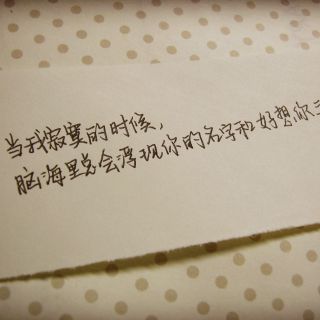 当我寂寞的时候，
脑海里总会浮现你的名字和好想你